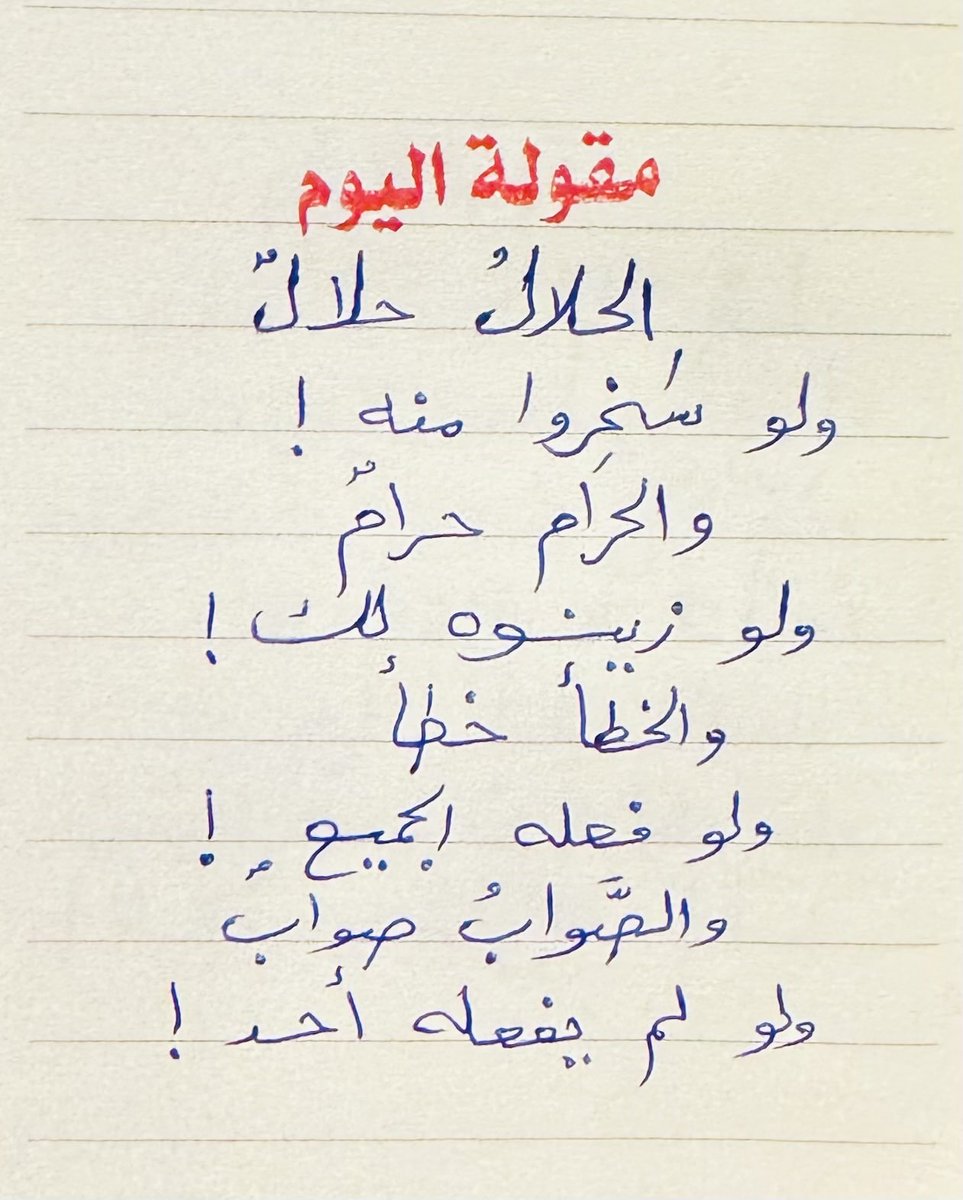 مقولة اليوم
الحلالُ حلالٌ
ولو سَخِروا منه !
والحرَام حرامٌ
ولو زينوه لك !
والخطأ خطأ
ولو فعله الجميع !
والصَّوابُ صوابٌ
ولو لم يفعله أحد !